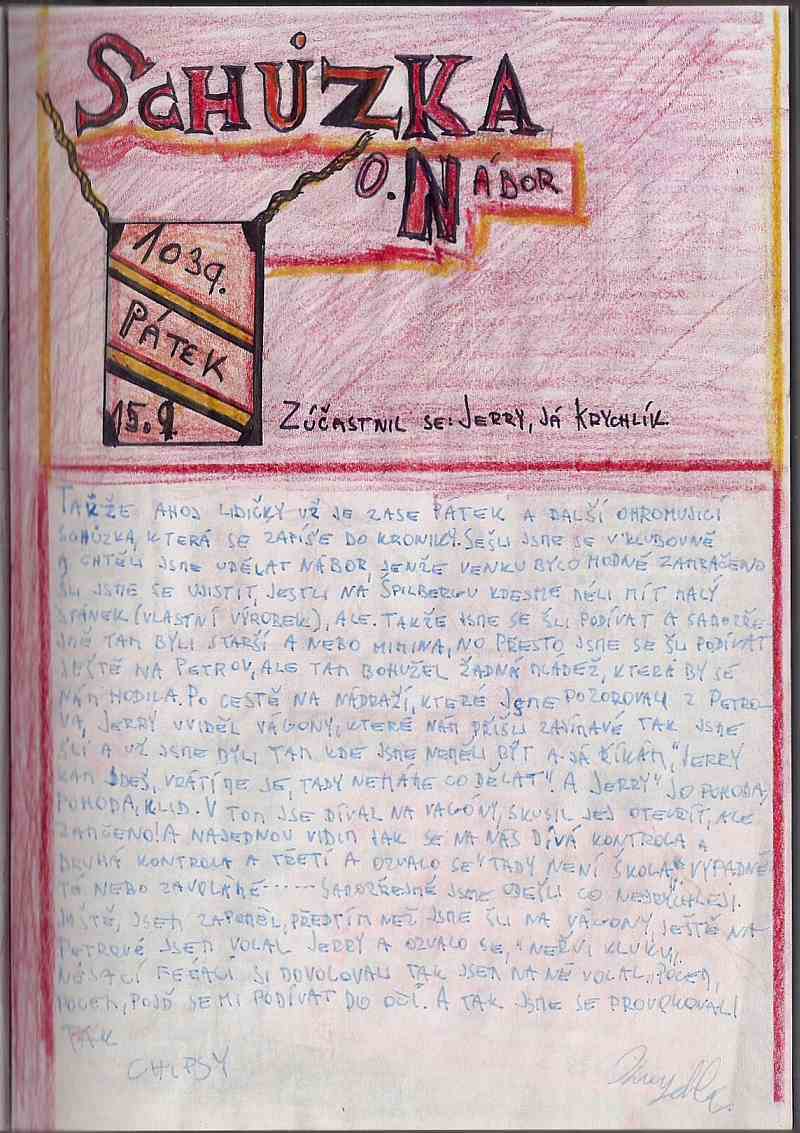 SCHŮZKA
O. NÁBOR
1039.
PÁTEK
15.9
ZÚČASTNIL SE: JERRY, JÁ KRYCHLÍK
TAKŽE AHOJ LIDIČKY UŽ JE ZASE PÁTEK A DALŠÍ OHROMUJICÍ
SCHŮZKA, KTERÁ SE ZAPÍŠE DO KRONIKY. SEŠLI JSME SE V KLUBOVNĚ
A CHTĚLI JSME UDĚLAT NÁBOR, JENŽE VENKU BYLO HODNĚ ZAMRAČENO
ŠLI JSME SE UJISTIT, JESTLI NA ŠPILBERGU KDESME MĚLI MÍT MALÝ
STÁNEK (VLASTNÍ VÝROBEK), ALE. TAKŽE JSME SE ŠLI PODÍVAT A SAMOZŘE-
JMĚ TAM BYLI STARŠÍ A NEBO MIMINA, NO PŘESTO JSME SE ŠLI PODÍVAT
JEŠTĚ NA PETROV, ALE TAM BOHUŽEL ŽÁDNÁ MLÁDEŽ, KTERÁ BY SE
NÁM HODILA. PO CESTĚ NA NÁDRAŽÍ, KTERÉ JSME POZOROVALI Z PETRO-
VA, JERRY UVIDĚL VÁGONY, KTERÉ NÁM PŘIŠLI ZAJÍMAVÉ TAK JSME
ŠLI A UŽ JSME BYLI TAM KDE JSME NEMĚLI BÝT A JÁ ŘÍKÁM, "JERRY
KAM JDEŠ, VRÁTÍME SE, TADY NEMÁME CO DĚLAT". A JERRY "JO POHODA,
POHODA, KLID. V TOM JSE DÍVAL NA VAGÓNY, SKUSIL JEJ OTEVŘÍT, ALE
ZAMČENO! A NAJEDNOU VIDIM JAK SE NA NÁS DÍVÁ KONTROLA A
DRUHÁ KONTROLA A TŘETÍ A OZVALO SE "TADY NENÍ ŠKOLA" VYPADNĚ
TE NEBO ZAVOLÁME----- SAMOZŘEJMĚ JSME ODEŠLI CO NEJRYCHLEJI.
JEŠTĚ, JSEM ZAPOMĚL, PŘEDTÍM NEŽ JSME ŠLI NA VÁGONY, JEŠTĚ NA
PETROVĚ JSEM VOLAL JERRY A OZVALO SE, "NEŘVI KLUKU".
NĚJACÍ FEŤÁCI SI DOVOLOVALI TAK JSEM NA NĚ VOLAL, POCEM,
POCEM, POJĎ SE MI PODÍVAT DO OČÍ. A TAK JSME SE PROVOKOVALI
PAK
CHIPSY